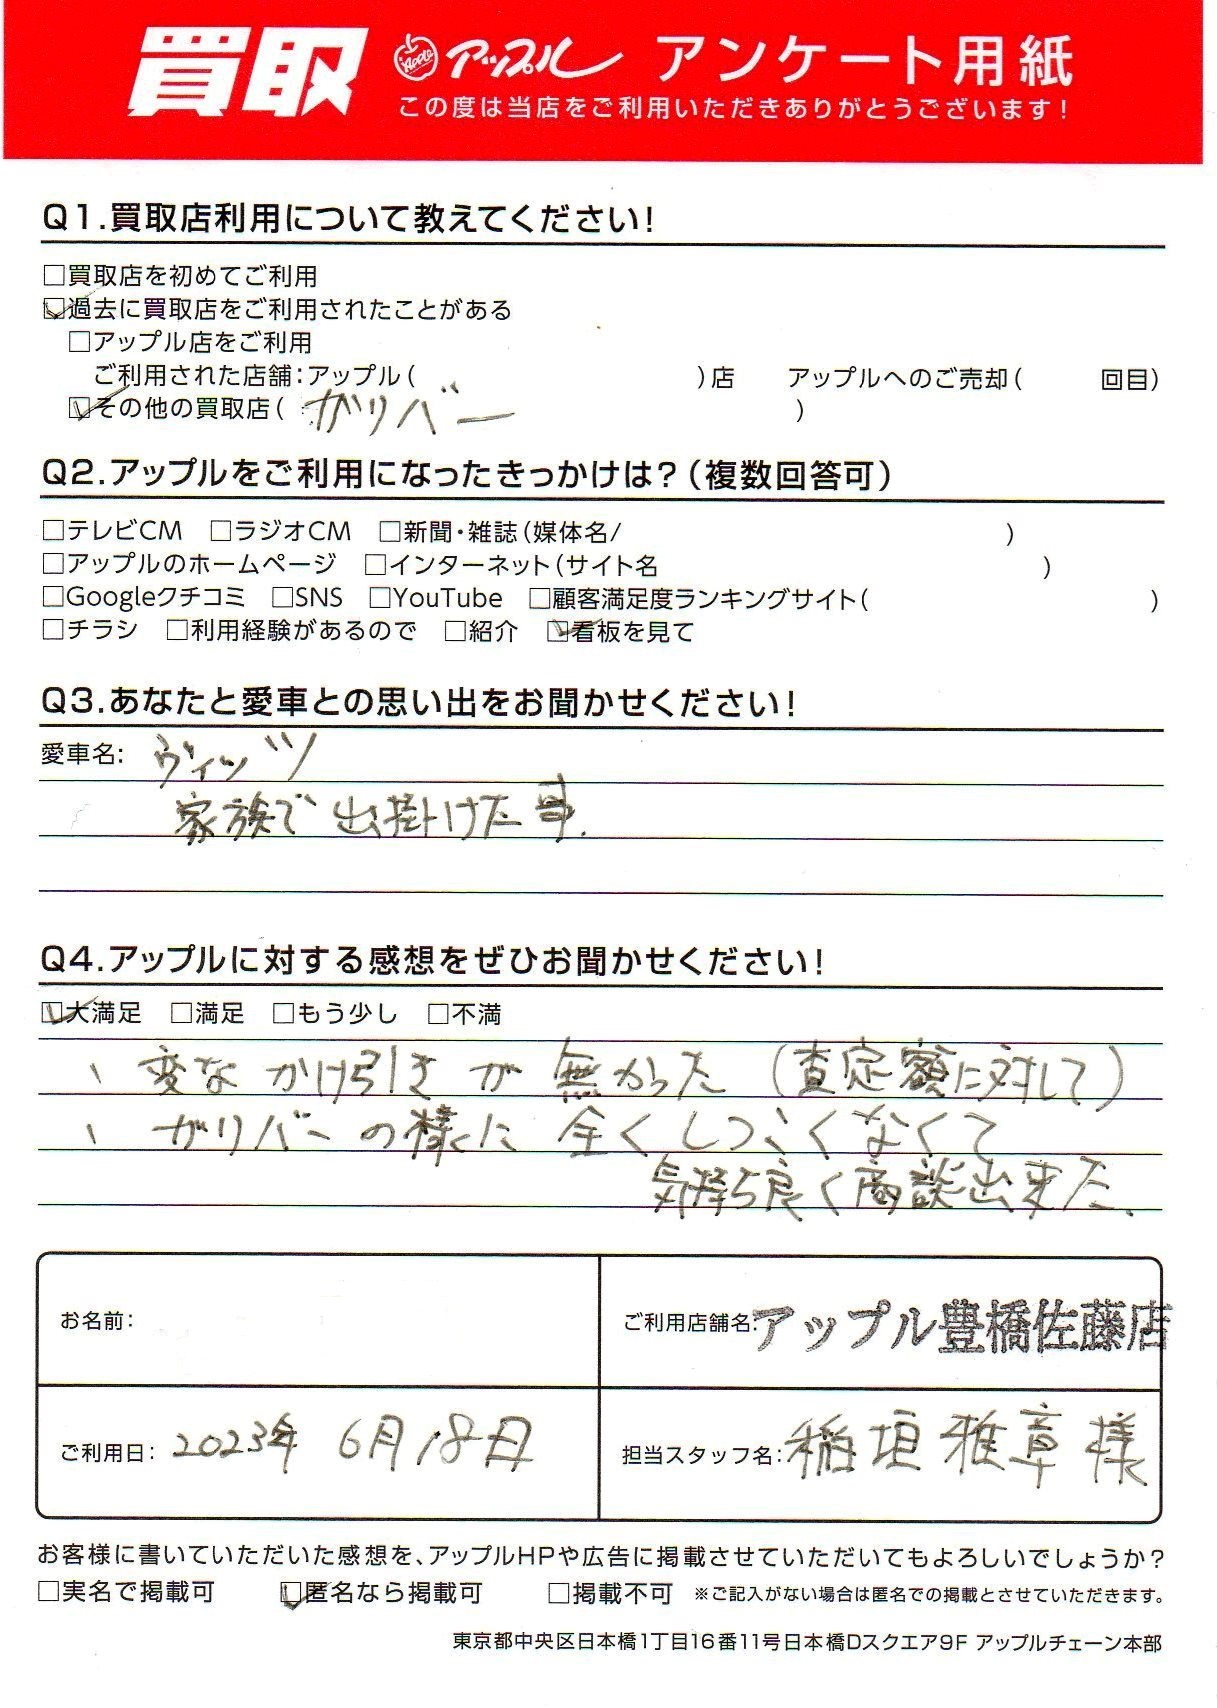 買取 Apple アップル アンケート用紙
この度は当店をご利用いただきありがとうございます!
Q1.買取店利用について教えてください!
□買取店を初めてご利用
☑過去に買取店をご利用されたことがある
□アップル店をご利用
ご利用された店舗:アップル( )店 アップルへのご売却( 回目)
☑その他の買取店( ガリバー )
Q2.アップルをご利用になったきっかけは?(複数回答可)
□テレビCM □ラジオCM □新聞・雑誌(媒体名/ )
□アップルのホームページ □インターネット(サイト名 )
□Googleクチコミ □SNS □YouTube □顧客満足度ランキングサイト( )
□チラシ □利用経験があるので □紹介 ☑看板を見て
Q3.あなたと愛車との思い出をお聞かせください!
愛車名: ヴィッツ
家族で出掛けた事.
Q4.アップルに対する感想をぜひお聞かせください!
☑大満足 □満足 □もう少し □不満
、変なかけ引きが無かった(査定額に対して)
、ガリバーの様に全くしつこくなくて
気持ち良く商談出来た.
お名前:
ご利用店舗名: アップル豊橋佐藤店
ご利用日: 2023年 6月18日
担当スタッフ名: 稲垣雅章様
お客様に書いていただいた感想を、アップルHPや広告に掲載させていただいてもよろしいでしょうか?
□実名で掲載可 ☑匿名なら掲載可 □掲載不可 ※ご記入がない場合は匿名での掲載とさせていただきます。
東京都中央区日本橋1丁目16番11号日本橋Dスクエア9F アップルチェーン本部